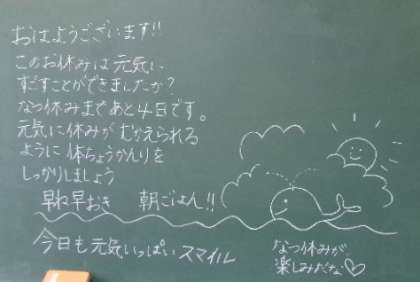 おはようございます!!
このお休みは元気に
すごすことができましたか?
なつ休みまであと4日です。
元気に休みがむかえられる
ように体ちょうかんりを
しっかりしましょう
早ね早おき 朝ごはん!!
今日も元気いっぱいスマイル
なつ休みが
楽しみだな♡